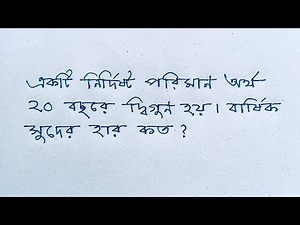 একটি নির্দিষ্ট পরিমান অর্থ
২০ বছরে দ্বিগুন হয়। বার্ষিক
সুদের হার কত?